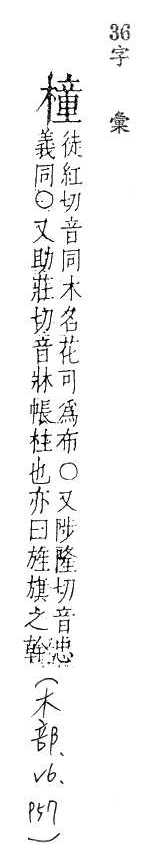 36
字彙
橦
徒紅切音同木名花可爲布○又陟隆切音忠
義同○又助莊切音牀帳柱也亦曰旌旗之幹
(木部、V6.P57)